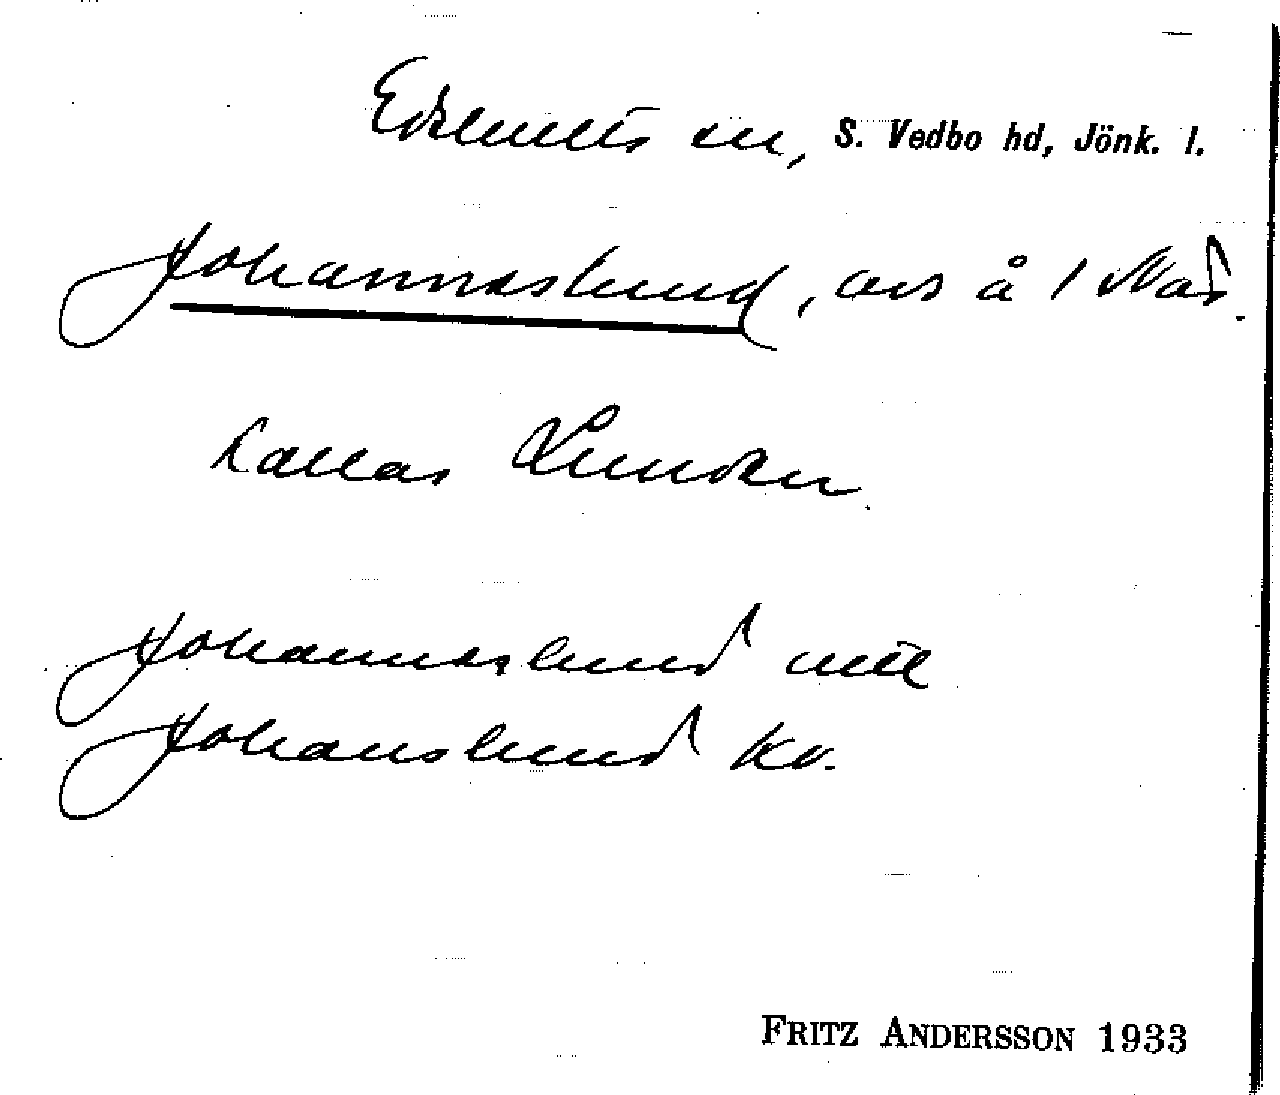 Edshults sn, S. Vedbo hd, Jönk. l.
Johanneslund, avs å 1 Näs.
kallas Lunden.
Johanneslund mtl
Johanslund kv.
FRITZ ANDERSSON 1933